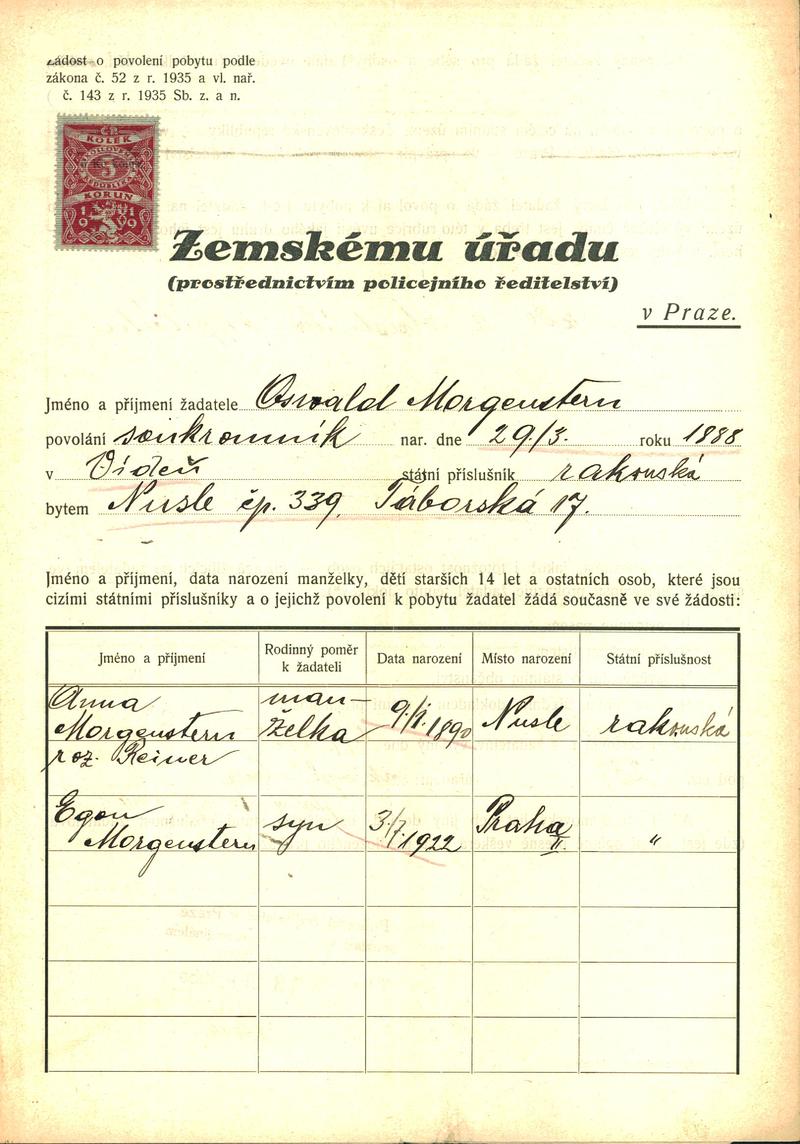 Žádost o povolení pobytu podle
zákona č. 52 z r. 1935 a vl. nař.
č. 143 z r. 1935 Sb. z. a n.
KOLEK
5
KORUN
Zemskému úřadu
(prostřednictvím policejního ředitelství)
v Praze.
Jméno a příjmení žadatele Oswald Morgenstern
povolání soukromník nar. dne 29./3. roku 1888
v Vídeň státní příslušník rakouská
bytem Nusle čp. 339, Táborská 17.
Jméno a příjmení, data narození manželky, dětí starších 14 let a ostatních osob, které jsou
cizími státními příslušníky a o jejichž povolení k pobytu žadatel žádá současně ve své žádosti:
Jméno a příjmení Rodinný poměr k žadateli Data narození Místo narození Státní příslušnost
Anna man-
Morgenstern želka 1890 Nusle rakouská
roz. Reiner
Egon syn Praha
Morgenstern 1922 II. "